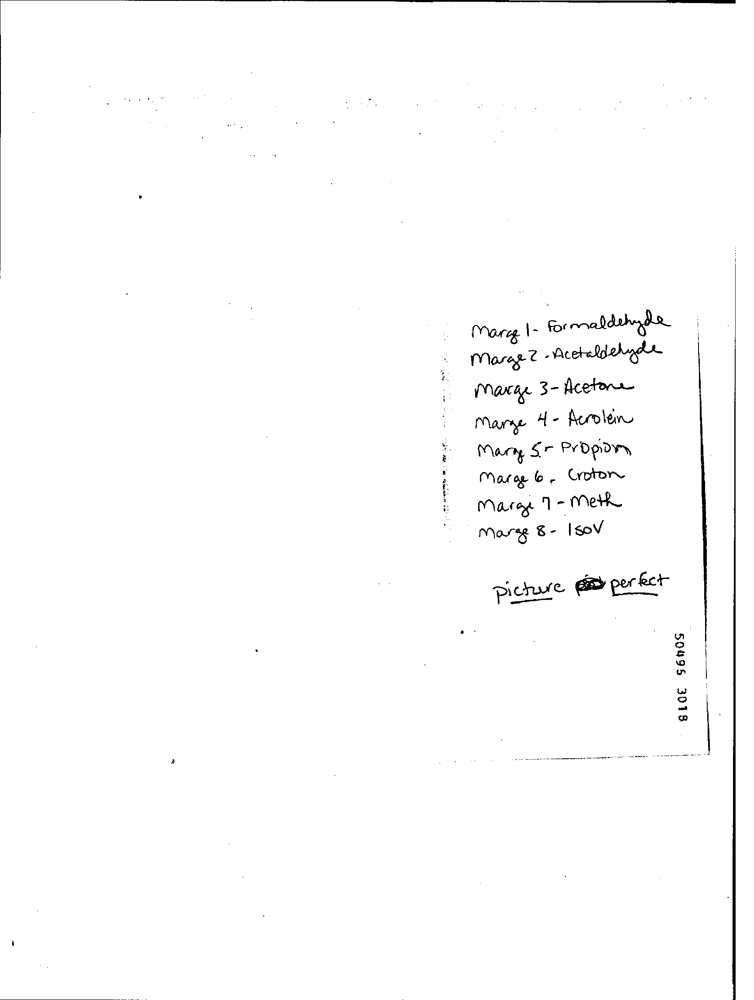 Marge 1- Formaldehyde
Marge 2 - Acetaldehyde
Marge 3- Acetone
Marge 4 - Acrolein
Marge 5 - Propion
Marge 6 - Croton
Marge 7 - Meth
Marge 8 - IsoV
picture perfect
50495 3018